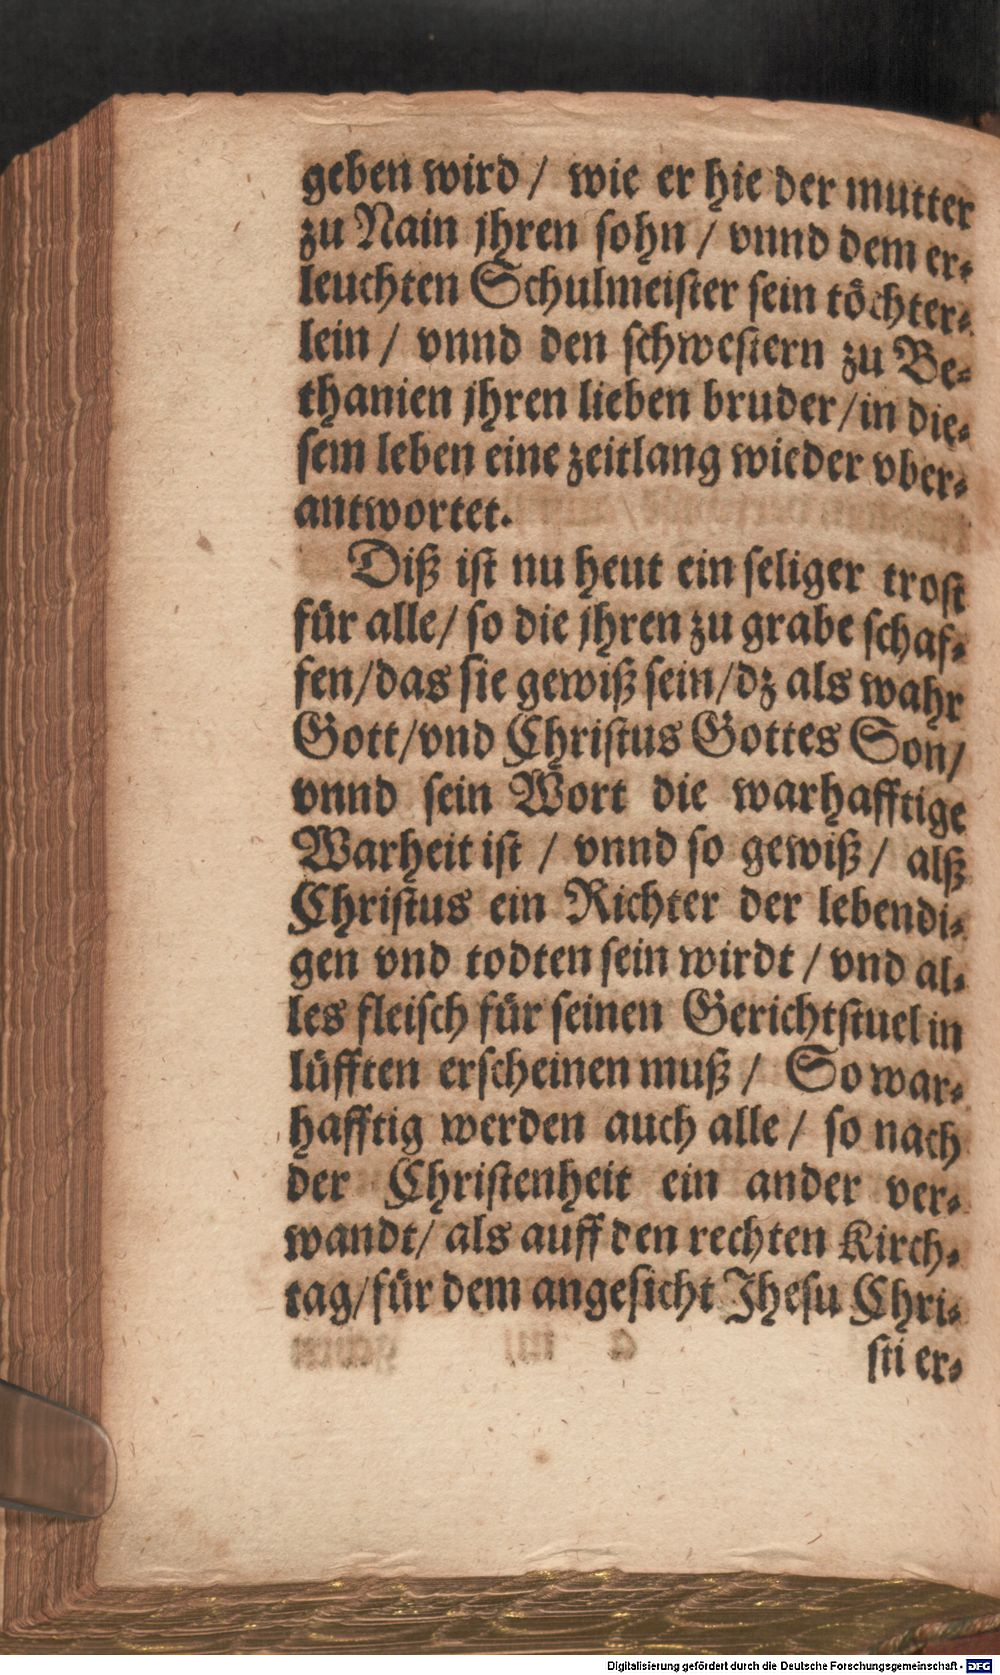 geben wird / wie er hie der mutter
zu Nain jhren sohn / vnnd dem er-
leuchten Schulmeister sein töchter-
lein / vnnd den schwestern zu Be-
thanien jhren lieben bruder/in die-
sem leben eine zeitlang wieder vber-
antwortet.
Diß ist nu heut ein seliger trost
für alle/ so die jhren zu grabe schaf-
fen/das sie gewiß sein/dz als wahr
Gott/vnd Christus Gottes Son/
vnnd sein Wort die warhafftige
Warheit ist / vnnd so gewiß/ alß
Christus ein Richter der lebendi-
gen vnd todten sein wirdt / vnd al-
les fleisch für seinen Gerichtstuel in
lüfften erscheinen muß / So war-
hafftig werden auch alle/ so nach
der Christenheit ein ander ver-
wandt/ als auff den rechten Kirch-
tag/für dem angesicht Jhesu Chri-
sti er-
Digitalisierung gefördert durch die Deutsche Forschungsgemeinschaft - DFG